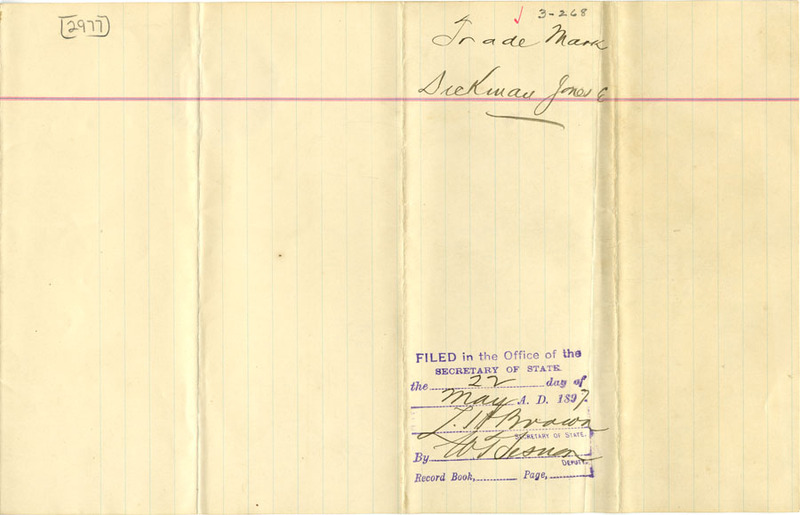 2977
3-268
Trade Mark
Dickman Jones C
FILED in the Office of the
SECRETARY OF STATE.
the 22 day of
May A. D. 1897.
L. H. Brown
SECRETARY OF STATE.
By W. T.
DEPUTY.
Record Book, Page,